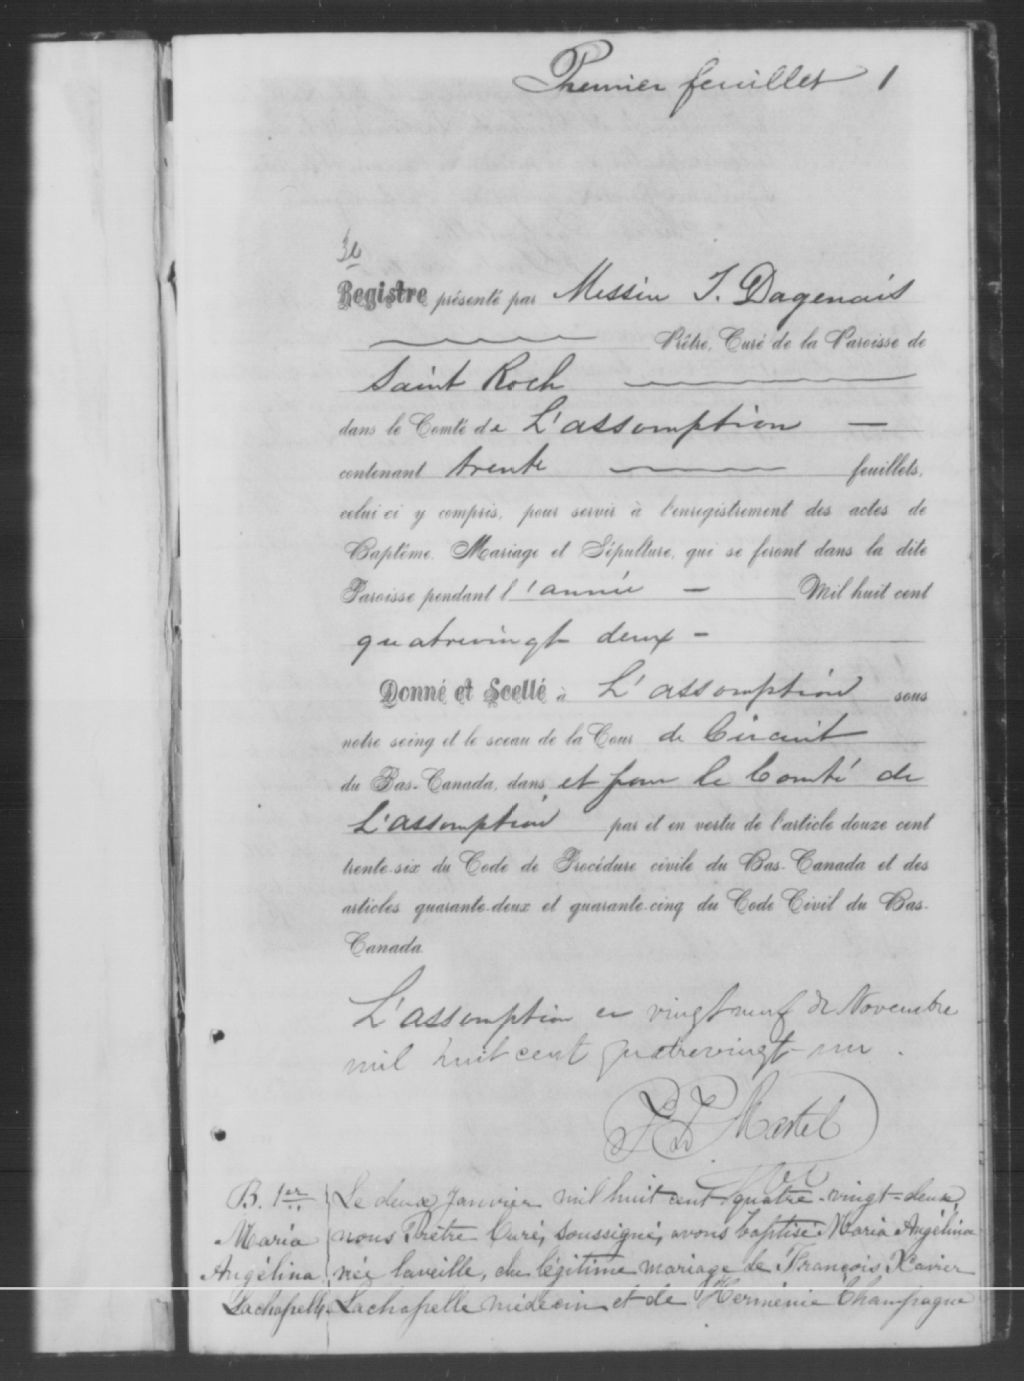 Premier feuillet 1
3e
Registre présenté par Messire J. Dagenais
Prêtre, Curé de la Paroisse de
Saint Roch
dans le Comté de L'assomption —
contenant trente feuillets,
celui ci y compris, pour servir à l'enregistrement des actes de
Baptême, Mariage et Sépulture, qui se feront dans la dite
Paroisse pendant l'année — Mil huit cent
quatrevingt deux -
Donné et Scellé à L'assomption sous
notre seing et le sceau de la Cour de Circuit
du Bas-Canada, dans et pour le Comté de
L'assomption par et en vertu de l'article douze cent
trente-six du Code de Procédure civile du Bas-Canada et des
articles quarante-deux et quarante-cinq du Code Civil du Bas-
Canada
L'assomption ce vingtneuf de Novembre
mil huit cent quatrevingt-un.
Martel
B. 1er Le deux Janvier mil huit cent quatre-vingt-deux,
Maria nous Prêtre Curé, soussigné, avons baptisé Maria Angélina
Angélina née la veille, du légitime mariage de François Xavier
Lachapelle. Lachapelle médecin et de Herménie Champagne